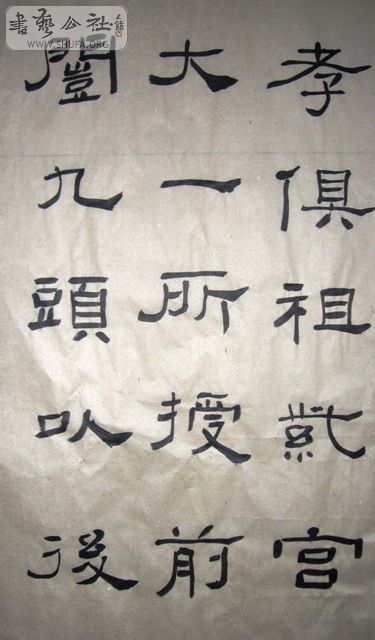 書藝公社
WWW.SHUFA.ORG
孝俱祖紫宮
大一所授前
闓九頭以後